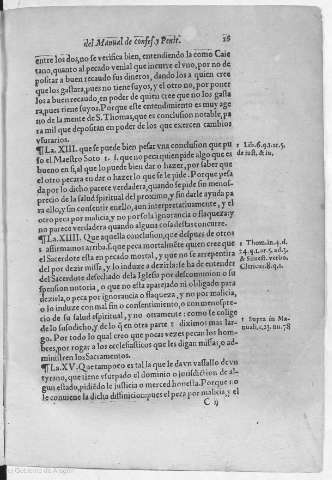 del Manual de cõfess. y Penit. 18
entre los dos, no se verifica bien, entendiendola como Caie
tano, quanto al pecado venial que incurre el vno, por no de
positar a buen recaudo sus dineros, dandolos a quien cree
que los gastara, pues no tiene suyos, y el otro no, por poner
los a buen recaudo, en poder de quien cree que no los gasta
ra, pues tiene suyos. Porque este entendimiento es muy age
no de la mente de S. Thomas, que es conclusion notable, pa
ra mil que depositan en poder de los que exercen cambios
vsurarios.
¶ La. XIII. que se puede bien pesar vna conclusion que pu
so el Maestro Soto 1. s. que no peca quien pide algo que es
bueno en si, al que lo puede bien dar o hazer, por saber que
el otro pecara en dar o hazer lo que se le pide. Porque pesa
da por lo dicho parece verdadera, quando se pide sin menos-
precio de la salud spiritual del proximo, y sin darle ayuda pa
ra ello, y sin consentir en ello, aun interpretatiuamente, y el
otro peca por malicia, y no por sola ignorancia o flaqueza: y
no parece verdadera quando alguna cosa destas concurre.
1 Lib. 6. q. 1. ar. 5.
de iust. & iu.
¶ La. XIIII. Que aquella conclusion, que despues de otros
1 affirmamos arriba. s. que peca mortalmẽte quien cree que
el Sacerdote esta en pecado mortal, y que no se arrepentira
del por dezir missa, y lo induze a dezirla: se ha de entender
del Sacerdote desechado dela Iglesia por descomunion o su
spension notoria, o que no esta aparejado ni obligado para
dezirla, o peca por ignorancia o flaqueza, y no por malicia,
o lo induze con mal fin o consentimiento, o con menospre-
cio de su salud espiritual, y no otramente: como se colige
de lo susodicho, y de lo q̃ en otra parte 2 diximos mas lar-
go. Por todo lo qual creo que pocas vezes pecan los hom-
bres, por rogar a los ecclesiasticos que les digan missas, o ad-
ministren los Sacramentos.
1 Thom. in. 4. d.
24. q. 1. ar. 5. ad. 5.
& Siluest. verbo.
Clericus. 8. q. 1.
2 Supra in Ma-
nuali. c. 23. nu. 78
¶ La. XV. Que tampoco es tal la que le da vn vassallo de vn
tyrano, que tiene vsurpado el dominio o iurisdiction de al-
gun estado, pidiẽdo le iusticia o merced honesta. Porque 1 o
le conuiene la dicha diffinicion, pues el peca por malicia, y el
C ij
Gobierno de Aragón